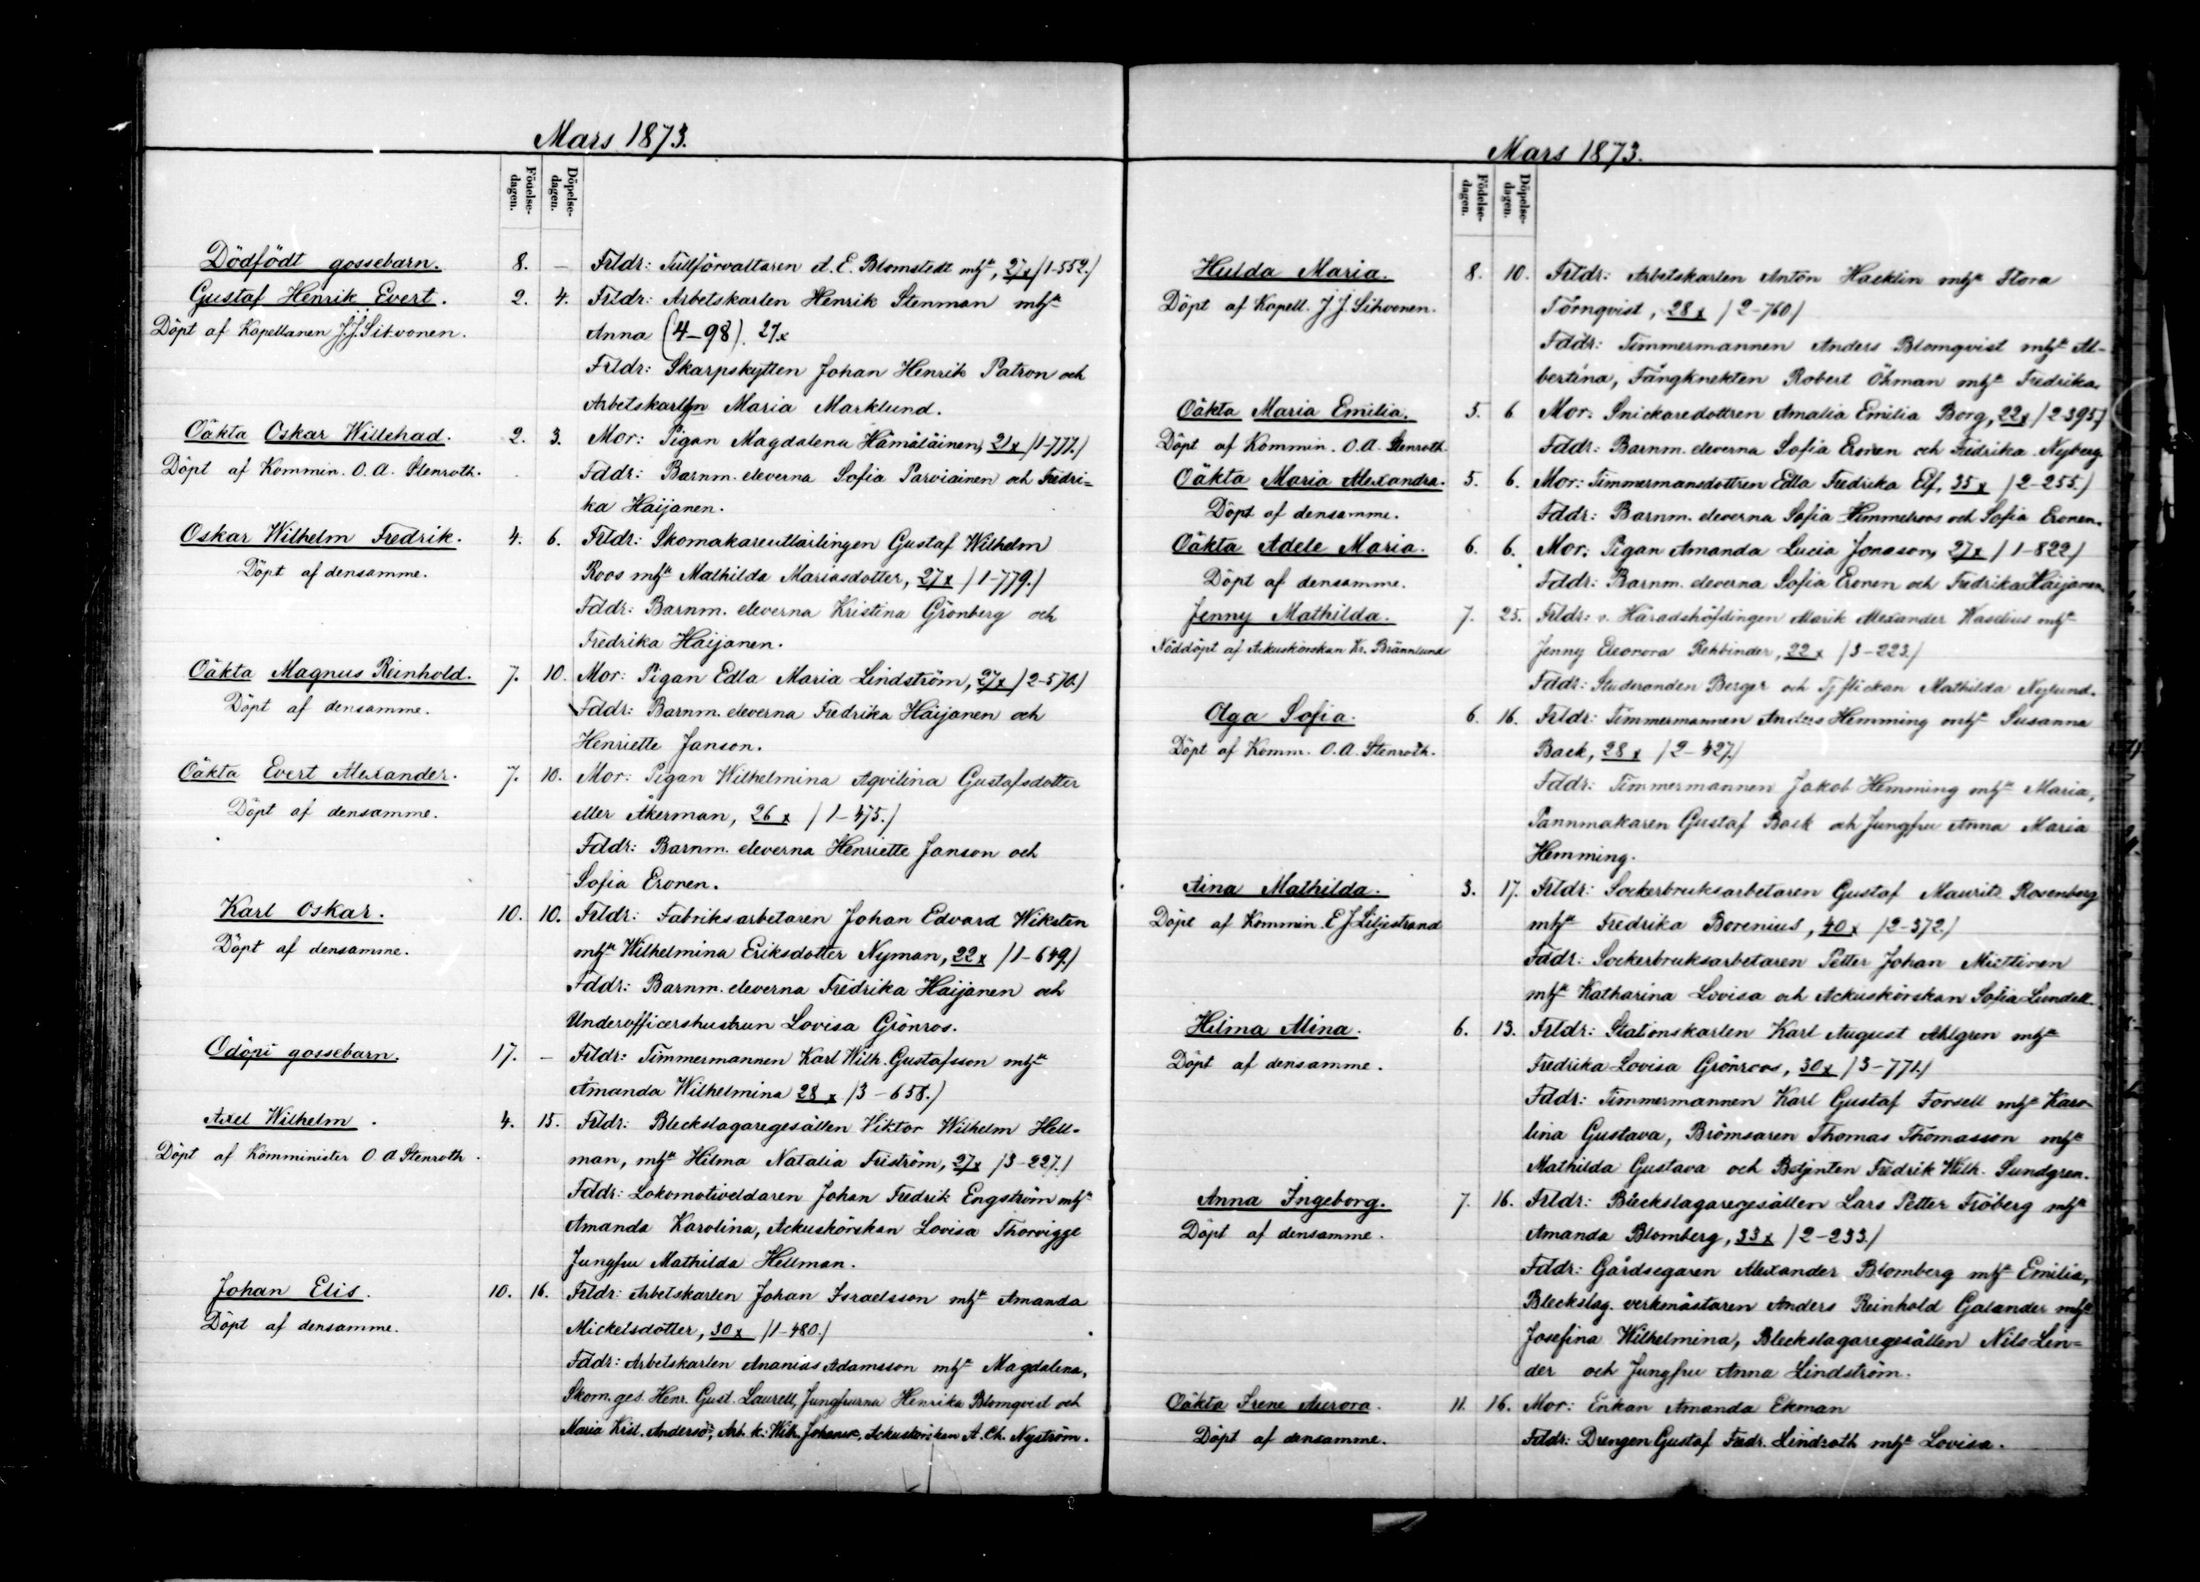 Mars 1873.
Födelse-
dagen.
Döpelse-
dagen.
Dödfödt gossebarn. 8. — Frldr: Tullförvaltaren A. E. Blomstedt mhst, 27x /1-552./
Gustaf Henrik Evert. 2. 4. Frldr: Arbetskarlen Henrik Stenman mhst
Döpt af Kapellanen J. J. Sihvonen. Anna (4-98). 27x
Frldr: Skarpskytten Johan Henrik Patron och
Arbetskarlen Maria Marklund.
Oäkta Oskar Willehad. 2. 3. Mor: Pigan Magdalena Hämäläinen, 21x /1-777./
Döpt af Kommin. O. A. Stenroth. Fddr: Barnm. eleverna Sofia Parviainen och Fredri-
ka Haijanen.
Oskar Wilhelm Fredrik. 4. 6. Frldr: Skomakareutlärlingen Gustaf Wilhelm
Döpt af densamme. Roos mhst Mathilda Mariasdotter, 27x /1-779./
Fddr: Barnm. eleverna Kristina Grönberg och
Fredrika Haijanen.
Oäkta Magnus Reinhold. 7. 10. Mor: Pigan Edla Maria Lindström, 27x /2-570./
Döpt af densamme. Fddr: Barnm. eleverna Fredrika Haijanen och
Henriette Janson.
Oäkta Evert Alexander. 7. 10. Mor: Pigan Wilhelmina Aqvilina Gustafsdotter
Döpt af densamme. eller Åkerman, 26x /1-475./
Fddr: Barnm. eleverna Henriette Janson och
Sofia Eronen.
Karl Oskar. 10. 10. Frldr: Fabriksarbetaren Johan Edvard Wiksten
Döpt af densamme. mhst Wilhelmina Eriksdotter Nyman, 22x /1-649./
Fddr: Barnm. eleverna Fredrika Haijanen och
Underofficershustrun Lovisa Grönros.
Odöpt gossebarn. 17. — Frldr: Timmermannen Karl Wilh. Gustafsson mhst
Amanda Wilhelmina 28x /3-658./
Axel Wilhelm. 4. 15. Frldr: Bleckslagaregesällen Viktor Wilhelm Hell-
Döpt af Komminister O. A. Stenroth. man, mhst Hilma Natalia Friström, 27x /3-227./
Fddr: Lokomotiveldaren Johan Fredrik Engström mhst
Amanda Karolina, Ackuskörskan Lovisa Thorvigge
Jungfru Mathilda Hellman.
Johan Elis. 10. 16. Frldr: Arbetskarlen Johan Israelsson mhst Amanda
Döpt af densamme. Mickelsdotter, 30x /1-480./
Fddr: Arbetskarlen Ananias Adamsson mhst Magdalena,
Skom. ges. Henr. Gust. Laurell, Jungfrurna Henrika Blomqvist och
Maria Krist. Anderso, Arb. k. Wilh. Johans, Ackuskörskan A. Ch. Nyström.
Mars 1873.
Födelse-
dagen.
Döpelse-
dagen.
Hulda Maria. 8. 10. Frldr: Arbetskarlen Anton Hacklin mhst Flora
Döpt af Kapell. J. J. Sihvonen. Törnqvist, 28x /2-760/
Fddr: Timmermannen Anders Blomqvist mhst Al-
bertina, Fångknekten Robert Öhman mhst Fredrika.
Oäkta Maria Emilia. 5. 6 Mor: Snickaredottren Amalia Emilia Borg, 22x /2-395./
Döpt af Kommin. O. A. Stenroth. Fddr: Barnm. eleverna Sofia Eronen och Fredrika Nyberg.
Oäkta Maria Alexandra. 5. 6. Mor: Timmermansdottren Edla Fredrika Elf, 35x /2-255./
Döpt af densamme. Fddr: Barnm. eleverna Sofia Himmelroos och Sofia Eronen.
Oäkta Adele Maria. 6. 6. Mor: Pigan Amanda Lucia Jonasson, 27x /1-822/
Döpt af densamme. Fddr: Barnm. eleverna Sofia Eronen och Fredrika Haijanen.
Jenny Mathilda. 7. 25. Frldr: v. Häradshöfdingen Alarik Alexander Waselius mhst
Nöddöpt af Ackuskörskan Kr. Brännlund Jenny Eleonora Rehbinder, 22x /3-223./
Fddr: Studeranden Berger och Tj. flickan Mathilda Nylund.
Olga Sofia. 6. 16. Frldr: Timmermannen Anders Hemming mhst Susanna
Döpt af Komm. O. A. Stenroth. Back, 28x /2-427./
Fddr: Timmermannen Jakob Hemming mhst Maria,
Pannmakaren Gustaf Back och Jungfru Anna Maria
Hemming.
Aina Mathilda. 3. 17. Frldr: Sockerbruksarbetaren Gustaf Maurits Rosenberg
Döpt af Kommin. E J Liljestrand mhst Fredrika Borenius, 40x /2-372./
Fddr: Sockerbruksarbetaren Petter Johan Miettinen
mhst Katharina Lovisa och Ackuskörskan Sofia Lundell.
Hilma Alina. 6. 13. Frldr: Stationskarlen Karl August Ahlgren mhst
Döpt af densamme. Fredrika Lovisa Grönroos, 30x /3-771./
Fddr: Timmermannen Karl Gustaf Forsell mhst Karo-
lina Gustava, Brömsaren Thomas Thomasson mhst
Mathilda Gustava och Betjnten Fredrik Wilh. Sundgren.
Anna Ingeborg. 7. 16. Frldr: Bleckslagaregesällen Lars Petter Fröberg mhst
Döpt af densamme. Amanda Blomberg, 33x /2-233./
Fddr: Gårdsegaren Alexander Blomberg mhst Emilia,
Bleckslag. verkmästaren Anders Reinhold Galander mhst
Josefina Wilhelmina, Bleckslagaregesällen Nils Lin-
der och Jungfru Anna Lindström.
Oäkta Irene Aurora. 11. 16. Mor: Enkan Amanda Ekman
Döpt af densamme. Fddr: Drengen Gustaf Fredr. Lindroth mhst Lovisa.